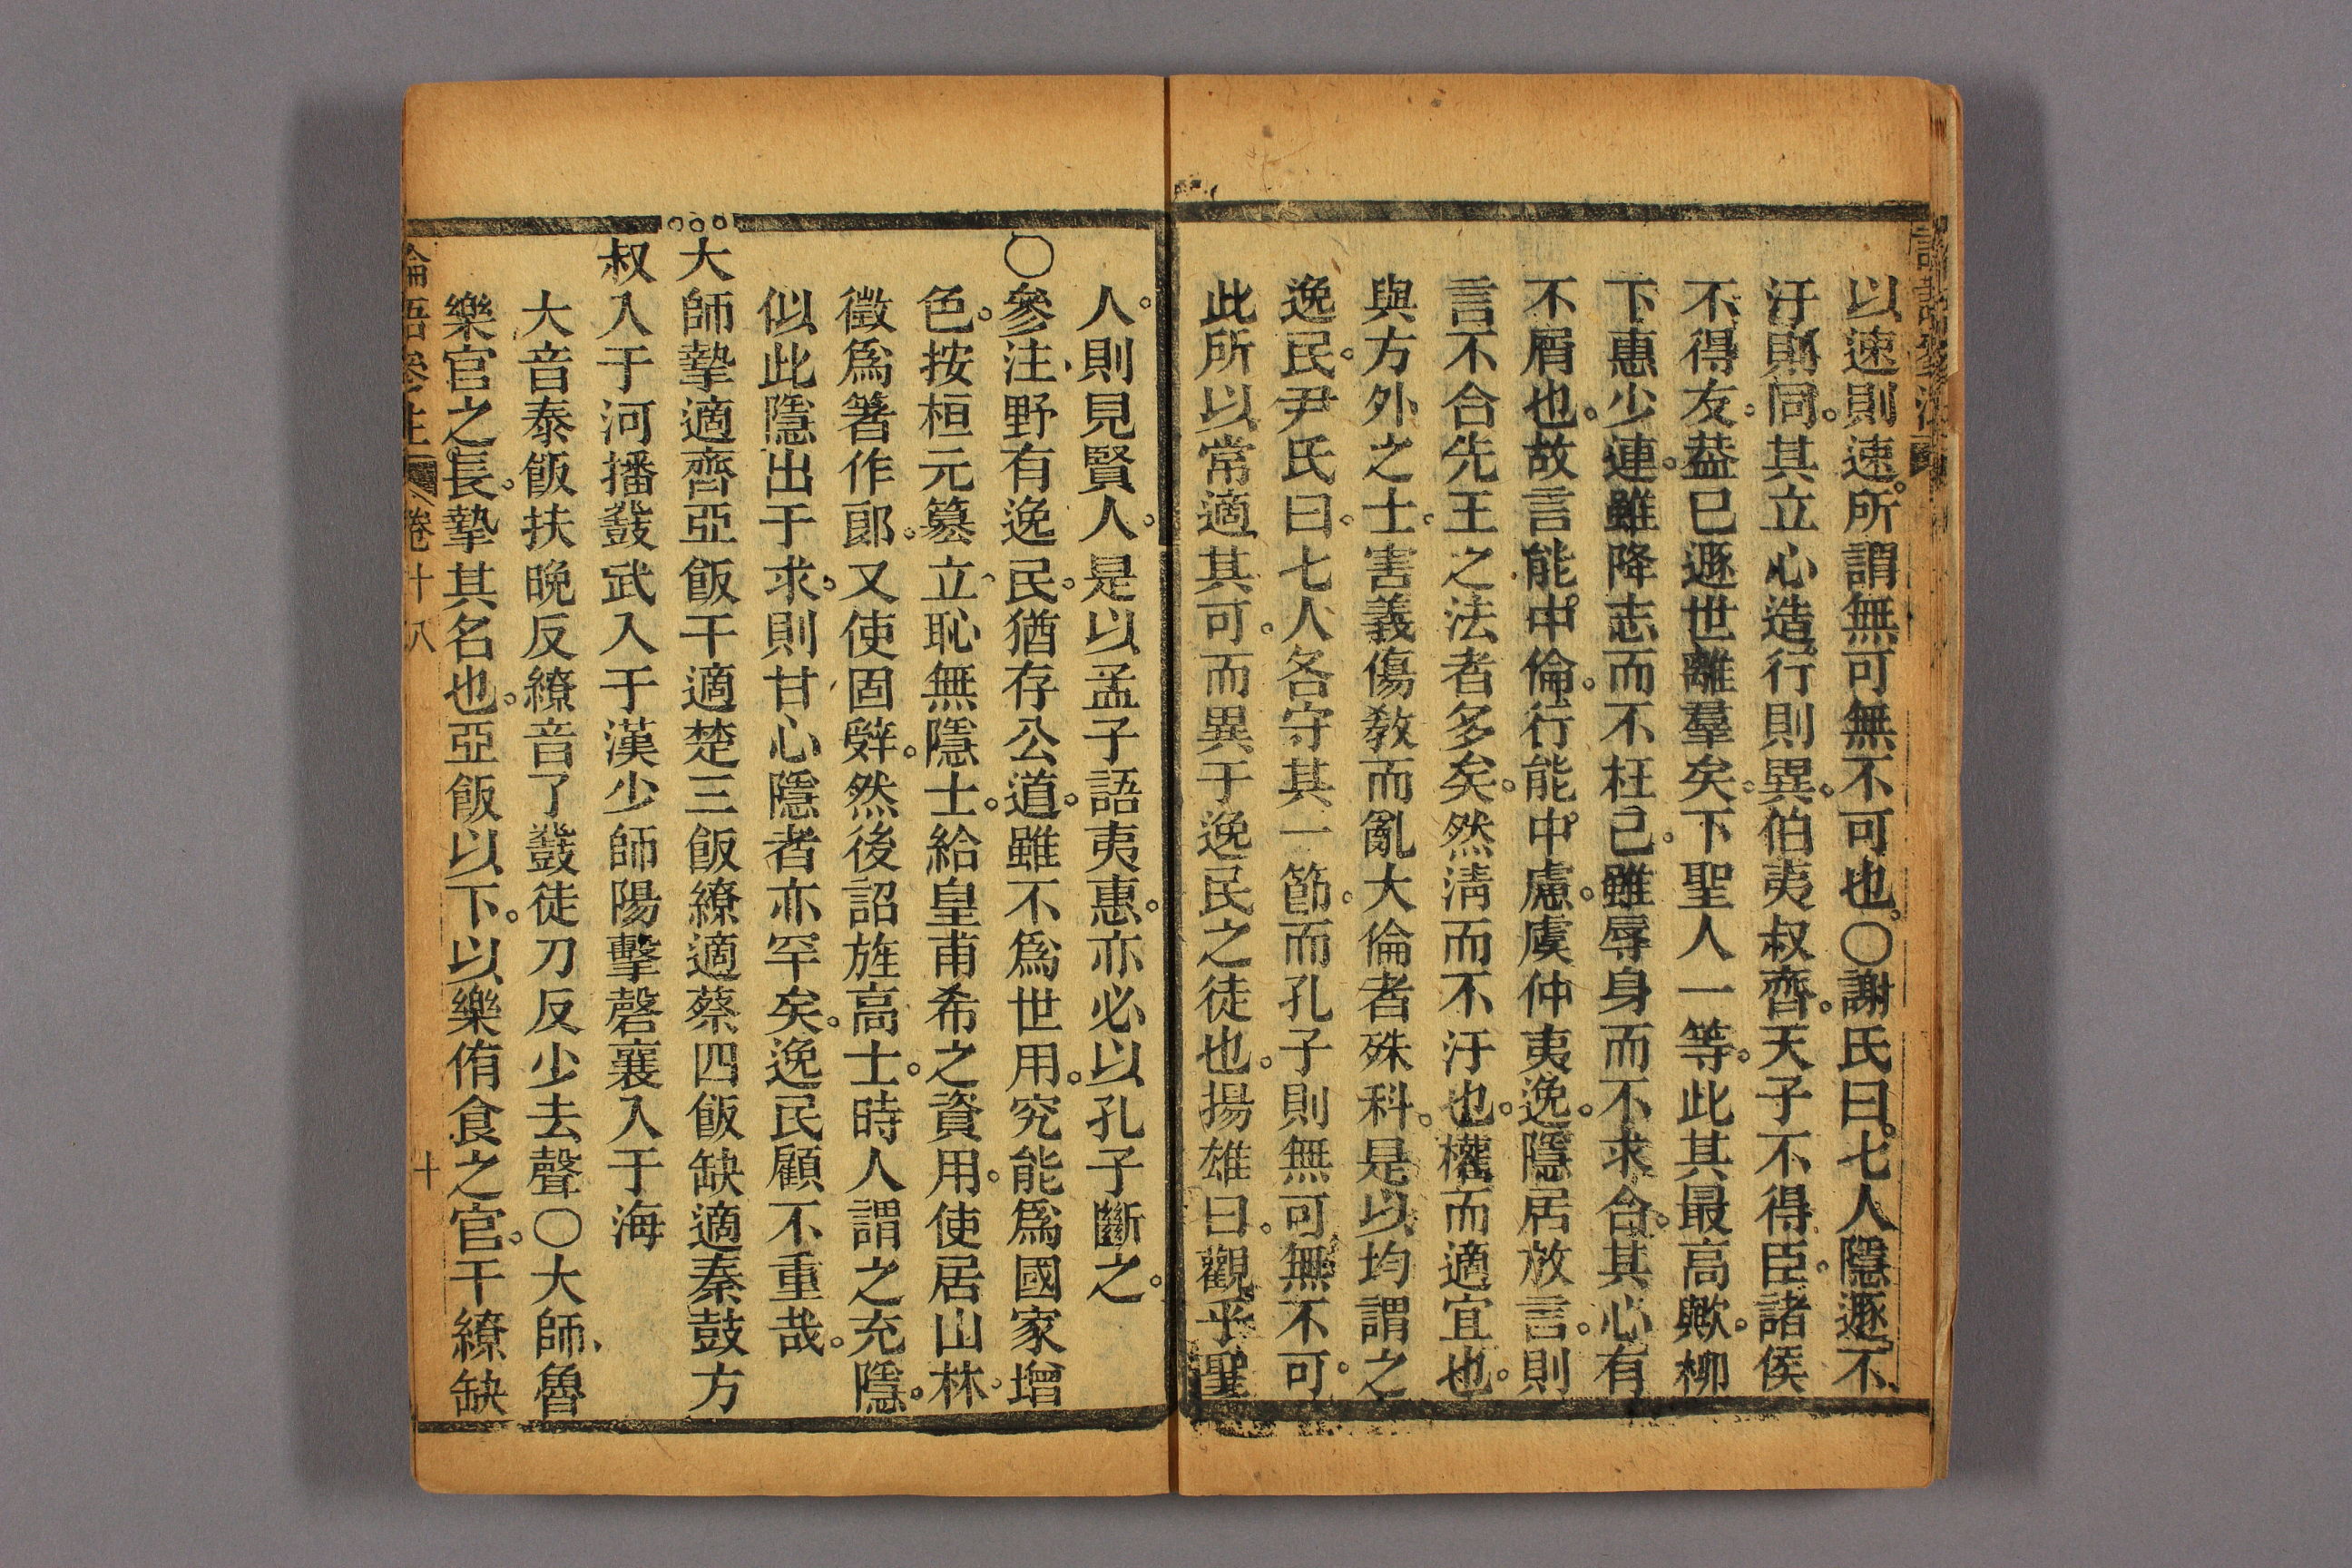 以速則速。所謂無可無不可也。○謝氏曰。七人隱遯不
汙則同。其立心造行則異。伯夷叔齊。天子不得臣。諸侯
不得友。葢已遯世離羣矣。下聖人一等。此其最高歟。柳
下惠少連。雖降志而不枉已。雖辱身而不求合。其心有
不屑也。故言能中倫。行能中慮。虞仲夷逸。隱居放言。則
言不合先王之法者多矣。然淸而不汙也。權而適宜也。
與方外之士。害義傷敎而亂大倫者殊科。是以均謂之
逸民。尹氏曰。七人各守其一節。而孔子則無可無不可。
此所以常適其可。而異于逸民之徒也。揚雄曰。觀乎聖
人。則見賢人。是以孟子語夷惠。亦必以孔子斷之。
○參注。野有逸民。猶存公道。雖不爲世用。究能爲國家增
色。按桓元簒立。恥無隱士。給皇甫希之資用。使居山林。
徵爲箸作郞。又使固辤。然後詔旌高士。時人謂之充隱。
似此隱出于求。則甘心隱者亦罕矣。逸民顧不重哉。
大師摯適齊亞飯干適楚三飯繚適蔡四飯缺適秦鼓方
叔入于河播鼗武入于漢少師陽擊磬襄入于海
大音泰飯扶晚反繚音了鼗徒刀反少去聲○大師、魯
樂官之長。摯其名也。亞飯以下。以樂侑食之官。干繚缺
論語參注 卷十八 十